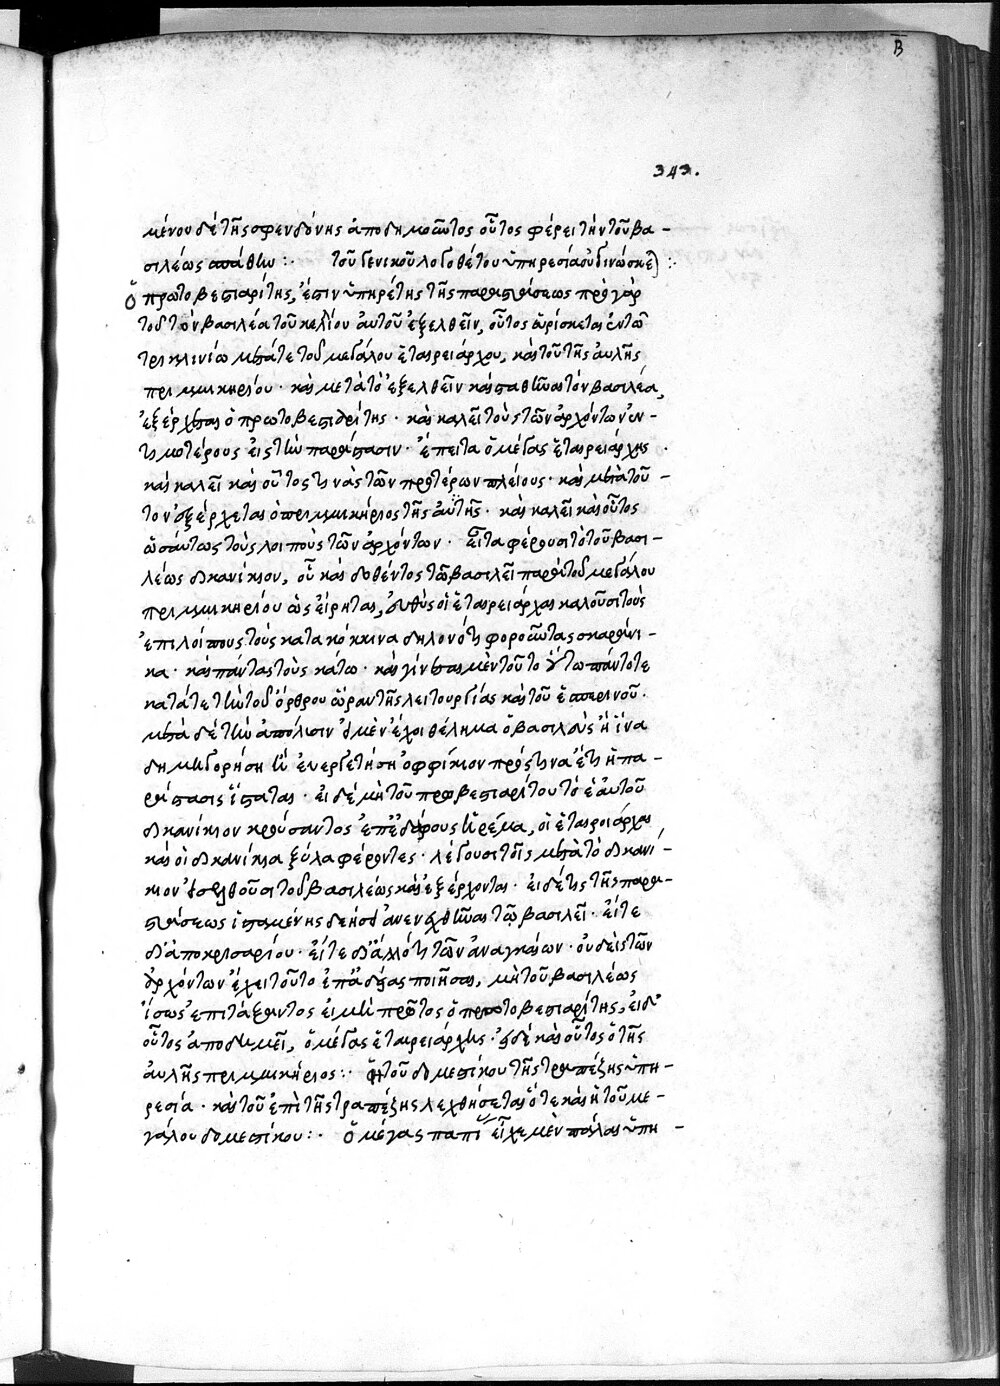 B
343.
μένου δὲ τῆς σφενδόνης ἀποδημοῦντος οὗτος φέρει τὴν τοῦ βα-
σιλέως σπάθην :· τοῦ γενικοῦ λογοθέτου ὑπηρεσία οὐ γινώσκε) :·
ὁ πρωτοβεστιαρίτης, ἔστιν ὑπηρέτης τῆς παραστάσεως πρὸ γὰρ
τοῦ τὸν βασιλέα τοῦ κελλίου αὐτοῦ ἐξελθεῖν, οὗτος εὑρίσκεται ἐν τῶ
τρικλινίω μετά τε τοῦ μεγάλου ἑταιρειάρχου, καὶ τοῦ τῆς αὐλῆς
πριμμικηρίου · καὶ μετὰ τὸ ἐξελθεῖν καὶ σταθῆναι τὸν βασιλέα,
ἐξέρχεται ὁ πρωτοβεστιαρίτης · καὶ καλεῖ τοὺς τῶν ἀρχόντων ἐν-
τιμοτέρους εἰς τὴν παράστασιν · ἔπειτα ὁ μέγας ἑταιρειάρχης ·
καὶ καλεῖ καὶ οὗτος τινὰς τῶν προτέρων πλείους · καὶ μετὰ τοῦ-
τον ἐξέρχεται ὁ πριμμικήριος τῆς αὐτῆς · καὶ καλεῖ καὶ οὗτος
ὡσαύτως τοὺς λοιποὺς τῶν ἀρχόντων · Εἶτα φέρουσι τὸ τοῦ βασι-
λέως δικανίκιον, οὗ καὶ δοθέντος τῶ βασιλεῖ παρὰ τοῦ μεγάλου
πριμμικηρίου ὡς εἴρηται, εὐθὺς οἱ ἑταιρειάρχαι καλοῦσι τοὺς
ἐπιλοίπους τοὺς κατακόκκινα δηλονότι φοροῦντας σκαράνι-
κα · καὶ πάντας τοὺς κάτω · καὶ γίνεται μὲν τοῦτο οὕτω πάντοτε
κατά τε τὴν τοῦ ὄρθρου ὥραν τῆς λειτουργίας καὶ τοῦ ἑσπερινοῦ ·
μετὰ δὲ τὴν ἀπόλυσιν εἰ μὲν ἔχοι θέλημα ὁ βασιλεὺς ἢ ἵνα
δημηγορήση ἢ ἐνεργετήση ὀφφίκιον πρός τινα ἔτι ἡ πα-
ράστασις ἵσταται · εἰ δὲ μὴ τοῦ πρωτοβεστιαρίτου τὸ ἑαυτοῦ
δικανίκιον κρούσαντος ἐπ' ἐδάφους ἠρέμα, οἱ ἑταιρειάρχαι
καὶ οἱ δικανίκια ξύλα φέροντες · λέγουσι τοῖς μετὰ τὸ δικανί-
κιον εἰσελθοῦσι τοῦ βασιλέως καὶ ἐξέρχονται · εἰ δέ τις τῆς παρα-
στάσεως ἱσταμένης δεήσει ἀνενεχθῆναι τῷ βασιλεῖ · εἴτε
δι' ἀποκρισαρίου · εἴτε δι' ἄλλό τι τῶν ἀναγκαίων · οὐδεὶς τῶν
ἀρχόντων ἔχει τοῦτο ἐπ' ἀδείας ποιῆσαι, μὴ τοῦ βασιλέως
ἴσως ἐπιτάξαντος εἰ μὴ πρῶτος ὁ πρωτοβεστιαρίτης, εἰ δ'
οὗτος ἀποδημεῖ, ὁ μέγας ἑταιρειάρχης · εἰ δὲ καὶ οὗτος ὁ τῆς
αὐλῆς πριμμικήριος :· ἡ τοῦ δομεστίκου τῆς τραπέζης ὑπη-
ρεσία · καὶ τοῦ ἐπὶ τῆς τραπέζης λεχθήσεται ὅτε καὶ ἡ τοῦ με-
γάλου δομεστίκου :· ὁ μέγας παπί εἶχε μὲν πάλαι ὑπη-